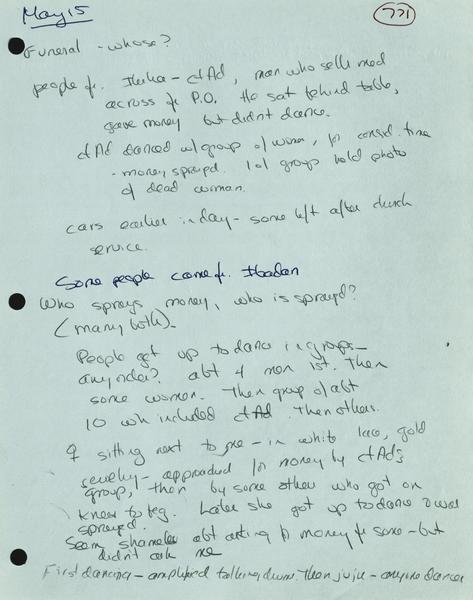 May 15
771
Funeral - whose?
people fr. - cfAd, man who sells med
across fr P.O. He sat behind table,
gave money but didn't dance.
cfAd danced w/ group of women, for consid. time
- money sprayed. 1 of group held photo
of dead woman.
cars earlier in day - some left after church
service.
Some people came fr. Ibadan
Who sprays money, who is sprayed?
(many both) -
People get up to dance in groups -
any order? abt 4 men 1st. Then
some women. Then group of abt
10 wh included cfAd. Then others.
♀ sitting next to me - in white lace, gold
jewelry - approached for money by cfAd's
group, then by some other who got on
knees to beg. Later she got up to dance & was
sprayed.
Seem shameless abt asking for money for some - but
didn't ask me
First dancing - amplified talking drum. Then juju - anyone dances